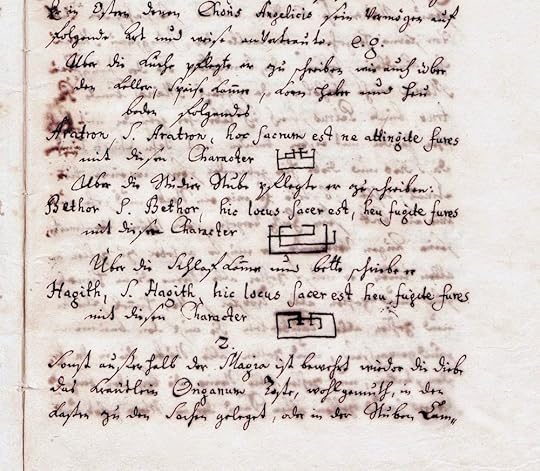 er in Osten denen Chöris Angelicis sein Vermögen auf
folgende Art und weise anvertraute. e.g.
Über die Küche pflegte er zu schreiben wie auch über
den Keller, Speise Kamer, Korn haber und heu
boden folgendes
Aratron, S. Aratron, hoc sacrum est ne attingite fures
mit diesen Character
Über die Studier Stube pflegte er zu schreiben:
Bethor S. Bethor, hic locus sacer est, heu fugite fures
mit diesen Character
Über die Schlaf Kamer und bette schrieb er
Hagith, S. Hagith, hic locus sacer est heu fugite fures
mit diesen Character
2.
Sonst außerhalb der Magia ist bewehrt wieder die diebe
das Kräutlein Origanum, wohlgemuth, in den
Kasten zu den Sachen geleget, oder in der Stuben Cam-